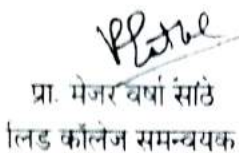 प्रा. मेजर वर्षा साठे
लिड कॉलेज समन्वयक